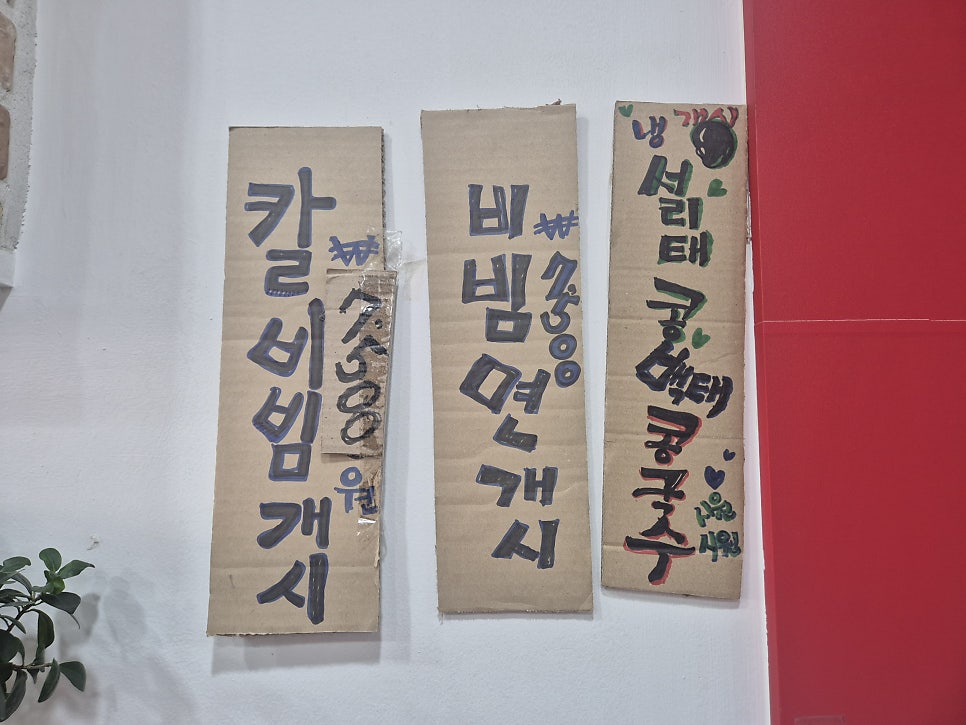 칼비빔개시
₩7.500원
비빔면개시
₩7.500
냉 개시
설리태콩
백태
콩국수
시원
시원